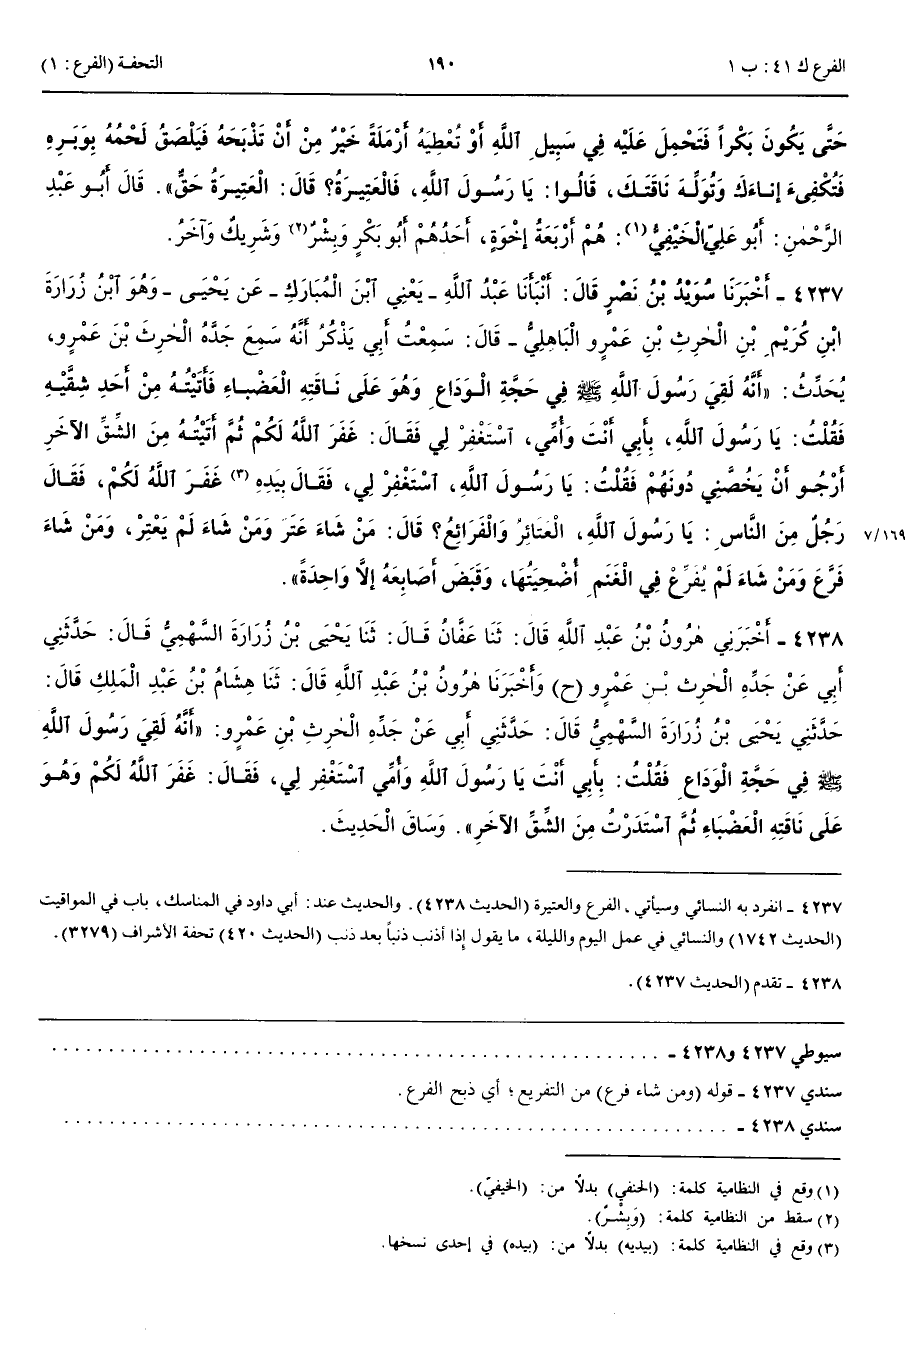 الفرع ك ٤١: ب ١ ١٩٠ التحفة (الفرع: ١)
حَتَّى يَكُونَ بَكْراً فَتَحْمِلَ عَلَيْهِ فِي سَبِيلِ ٱللَّهِ أَوْ تُعْطِيَهُ أَرْمَلَةً خَيْرٌ مِنْ أَنْ تَذْبَحَهُ فَيَلْصَقُ لَحْمُهُ بِوَبَرِهِ
فَتُكْفِىءَ إِنَاءَكَ وَتُوَلِّهَ نَاقَتَكَ، قَالُوا: يَا رَسُولَ اللَّهِ، فَالْعَتِيرَةُ؟ قَالَ: الْعَتِيرَةُ حَقٌّ». قَالَ أَبُو عَبْدِ
الرَّحْمٰنِ: أَبُو عَلِيّ الْخَيْفِيُّ(١): هُمْ أَرْبَعَةُ إِخْوَةٍ، أَحَدُهُمْ أَبُو بَكْرٍ وَبِشْرٌ(٢) وَشَرِيكٌ وَآخَرُ.
٤٢٣٧ ـ أَخْبَرَنَا سُوَيْدُ بْنُ نَصْرٍ قَالَ: أَنْبَأَنَا عَبْدُ اللَّهِ ـ يَعْنِي ٱبْنَ الْمُبَارَكِ ـ عَن يَحْيَى ـ وَهُوَ ٱبْنُ زُرَارَةَ
ابْنِ كُرَيْمِ بْنِ الْحٰرِثِ بْنِ عَمْرٍو الْبَاهِلِيُّ ـ قَالَ: سَمِعْتُ أَبِي يَذْكُرُ أَنَّهُ سَمِعَ جَدَّهُ الْحٰرِثَ بْنَ عَمْرٍو،
يُحَدِّثُ: «أَنَّهُ لَقِيَ رَسُولَ اللَّهِ ﷺ فِي حَجَّةِ الْوَدَاعِ وَهُوَ عَلَى نَاقَتِهِ الْعَضْبَاءِ فَأَتَيْتُهُ مِنْ أَحَدِ شِقَّيْهِ
فَقُلْتُ: يَا رَسُولَ اللَّهِ، بِأَبِي أَنْتَ وَأُمِّي، ٱسْتَغْفِرْ لِي فَقَالَ: غَفَرَ اللَّهُ لَكُمْ ثُمَّ أَتَيْتُهُ مِنَ الشِّقِّ الآخَرِ
أَرْجُو أَنْ يَخُصَّنِي دُونَهُمْ فَقُلْتُ: يَا رَسُولَ اللَّهِ، ٱسْتَغْفِرْ لِي، فَقَالَ بِيَدِهِ(٣) غَفَرَ اللَّهُ لَكُمْ، فَقَالَ
رَجُلٌ مِنَ النَّاسِ: يَا رَسُولَ اللَّهِ، الْعَتَائِرُ وَالْفَرَائِعُ؟ قَالَ: مَنْ شَاءَ عَتَرَ وَمَنْ شَاءَ لَمْ يَعْتِرْ، وَمَنْ شَاءَ ٧/١٦٩
فَرَّعَ وَمَنْ شَاءَ لَمْ يُفَرِّعْ فِي الْغَنَمِ أُضْحِيَتُهَا، وَقَبَضَ أَصَابِعَهُ إِلَّا وَاحِدَةً».
٤٢٣٨ ـ أَخْبَرَنِي هٰرُونُ بْنُ عَبْدِ اللَّهِ قَالَ: ثَنَا عَفَّانُ قَالَ: ثَنَا يَحْيَى بْنُ زُرَارَةَ السَّهْمِيُّ قَالَ: حَدَّثَنِي
أَبِي عَنْ جَدِّهِ الْحٰرِثِ بْنِ عَمْرٍو (ح) وَأَخْبَرَنَا هٰرُونُ بْنُ عَبْدِ اللَّهِ قَالَ: ثَنَا هِشَامُ بْنُ عَبْدِ الْمَلِكِ قَالَ:
حَدَّثَنِي يَحْيَى بْنُ زُرَارَةَ السَّهْمِيُّ قَالَ: حَدَّثَنِي أَبِي عَنْ جَدِّهِ الْحٰرِثِ بْنِ عَمْرٍو: «أَنَّهُ لَقِيَ رَسُولَ اللَّهِ
ﷺ فِي حَجَّةِ الْوَدَاعِ فَقُلْتُ: بِأَبِي أَنْتَ يَا رَسُولَ اللَّهِ وَأُمِّي ٱسْتَغْفِرْ لِي، فَقَالَ: غَفَرَ اللَّهُ لَكُمْ وَهُوَ
عَلَى نَاقَتِهِ الْعَضْبَاءِ ثُمَّ ٱسْتَدَرْتُ مِنَ الشِّقِّ الآخَرِ». وَسَاقَ الْحَدِيثَ.
٤٢٣٧ ـ انفرد به النسائي وسيأتي، الفرع والعتيرة (الحديث ٤٢٣٨). والحديث عند: أبي داود في المناسك، باب في المواقيت
(الحديث ١٧٤٢) والنسائي في عمل اليوم والليلة، ما يقول إذا أذنب ذنباً بعد ذنب (الحديث ٤٢٠) تحفة الأشراف (٣٢٧٩).
٤٢٣٨ ـ تقدم (الحديث ٤٢٣٧).
سيوطي ٤٢٣٧ و٤٢٣٨ ـ . . . . . . . . . . . . . . . . . . . . . . . . . . . . . . . . . . . . . . . .
سندي ٤٢٣٧ ـ قوله (ومن شاء فرع) من التفريع؛ أي ذبح الفرع.
سندي ٤٢٣٨ ـ . . . . . . . . . . . . . . . . . . . . . . . . . . . . . . . . . . . . . . . . . . .
(١) وقع في النظامية كلمة: (الحنفي) بدلاً من: (الخيفيّ).
(٢) سقط من النظامية كلمة: (وَبِشْرٌ).
(٣) وقع في النظامية كلمة: (بيديه) بدلاً من: (بيده) في إحدى نسخها.